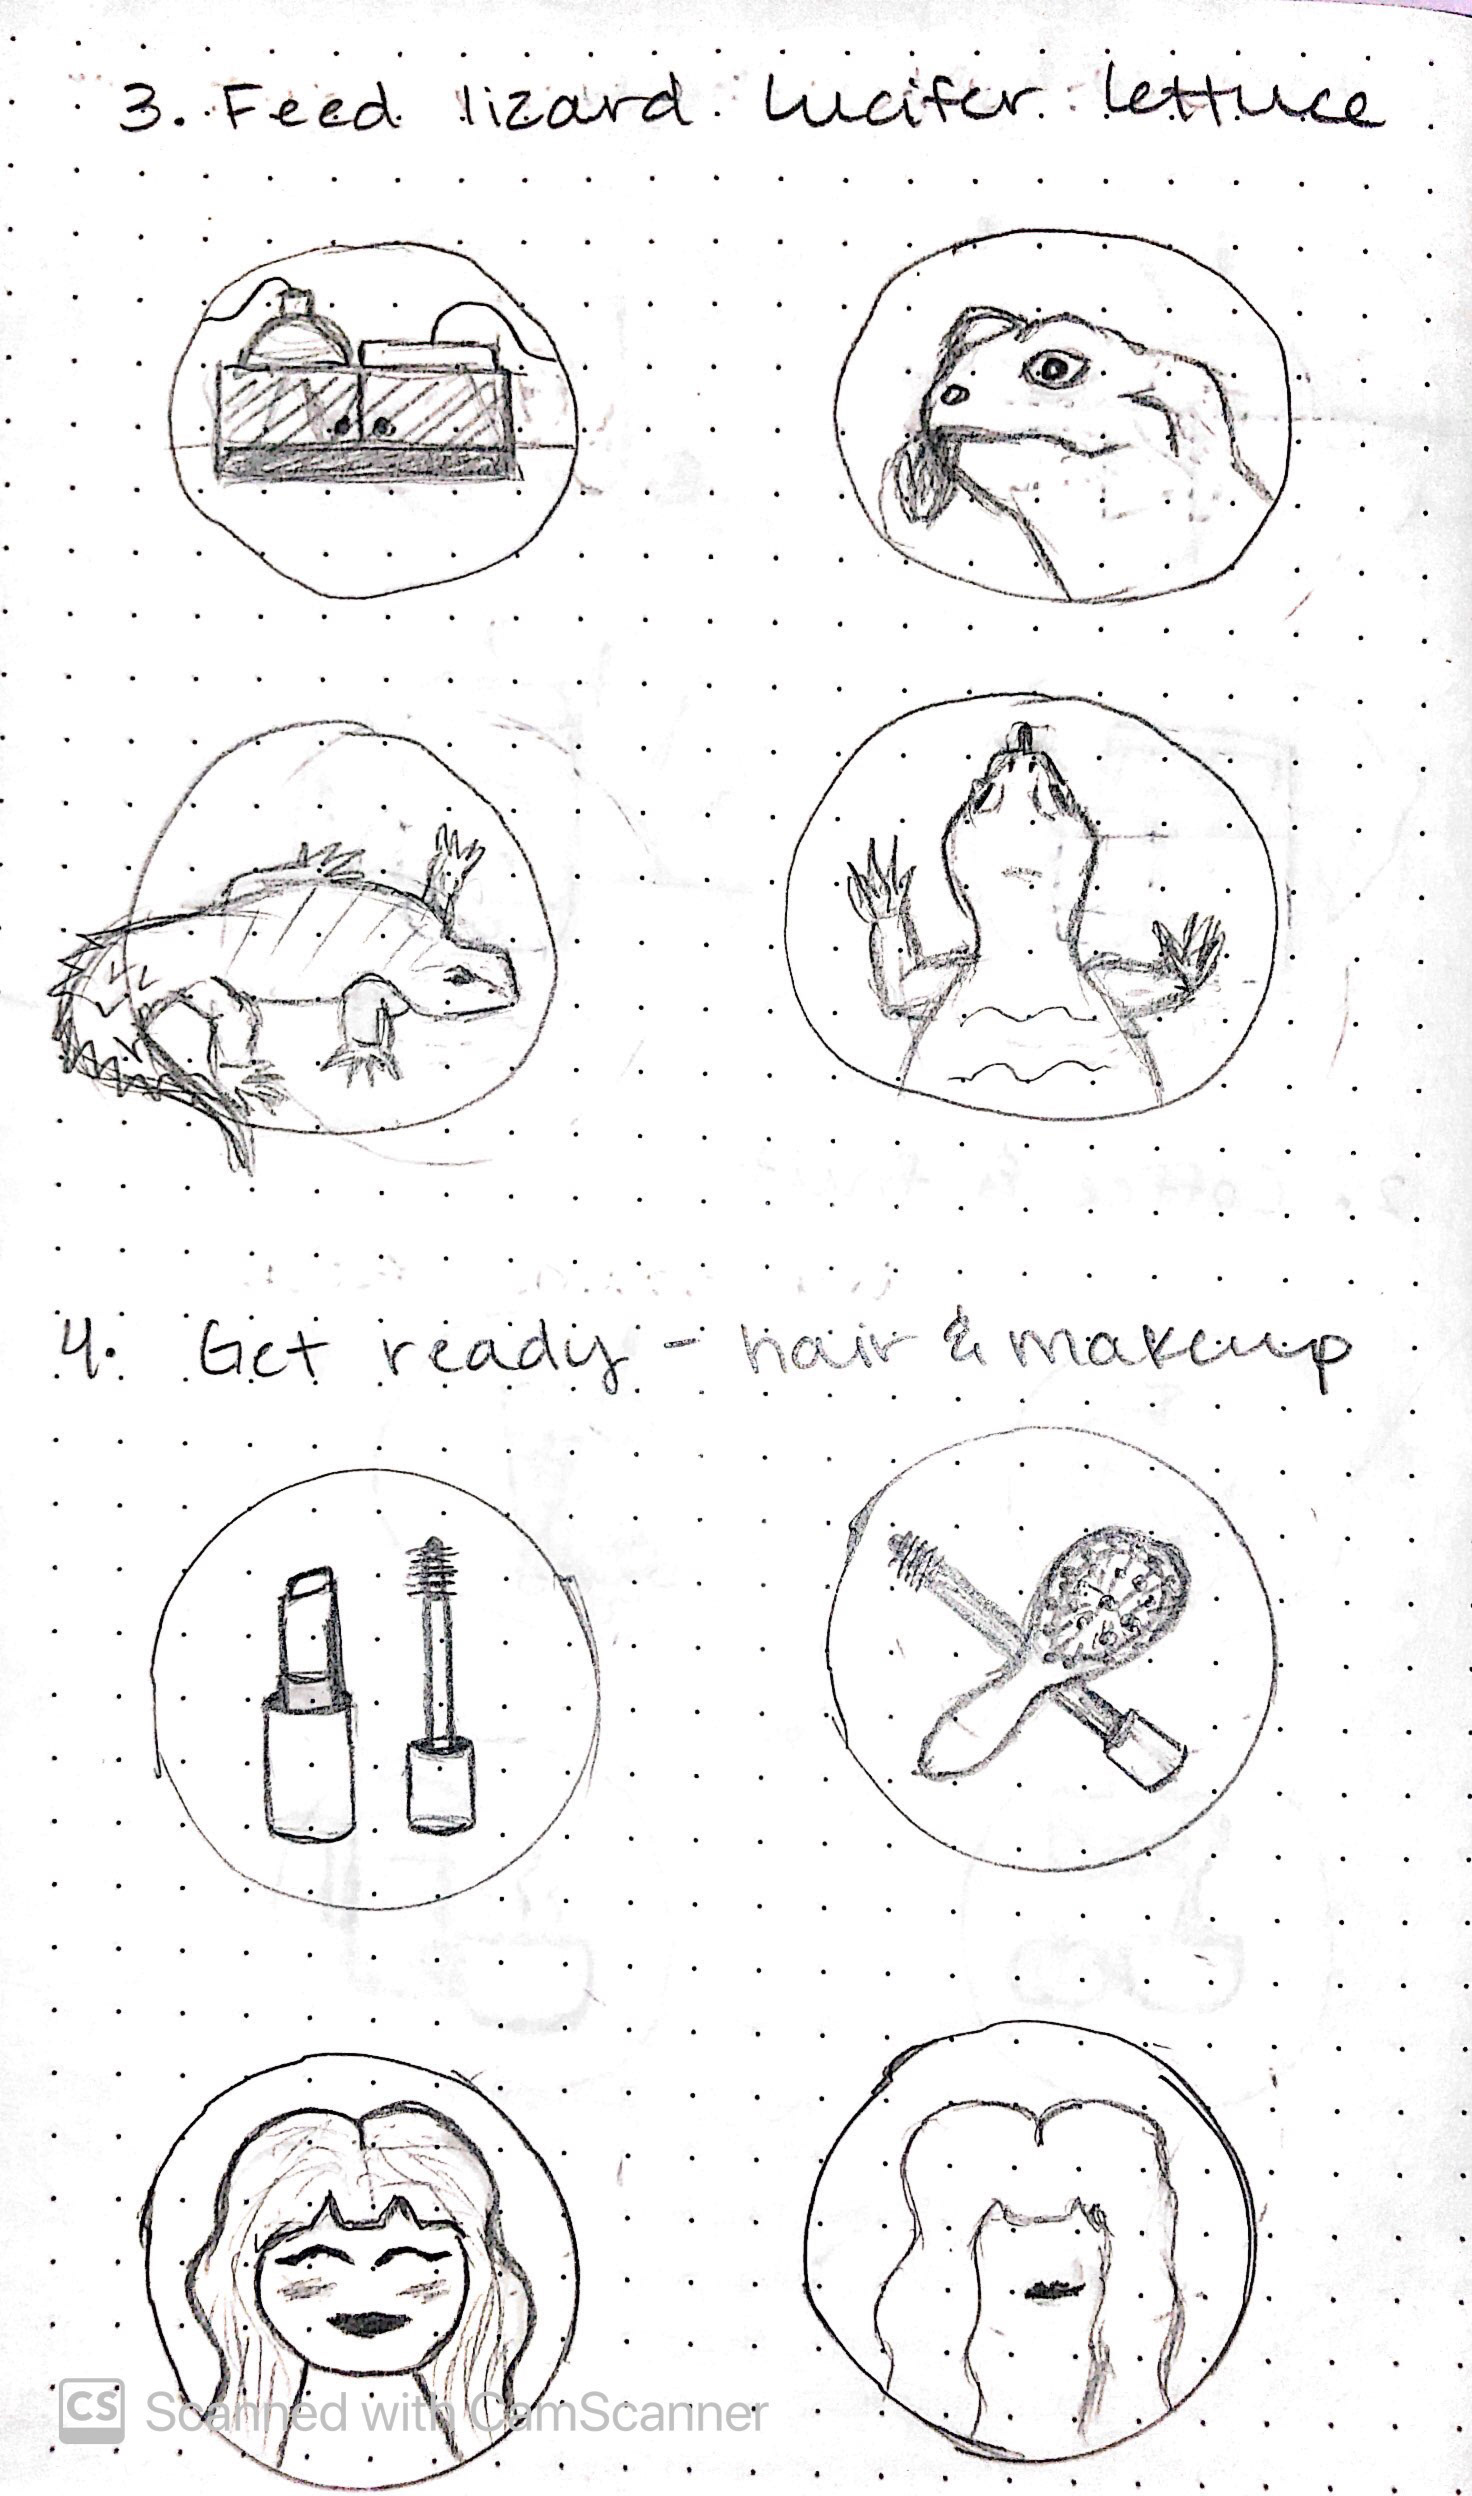 3. Feed lizard Lucifer lettuce
4. Get ready - hair & makeup
CS Scanned with CamScanner